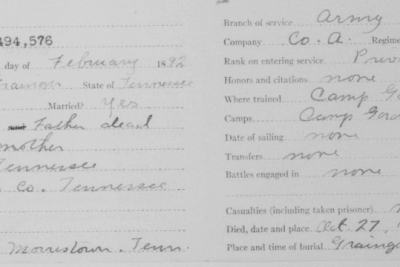 494,576
day of February 1892
State of Tennessee
Married? Yes
Father dead
mother
Tennessee
Co. Tennessee
Morristown. Tenn.
Branch of service Army
Company Co. A. Regime
Rank on entering service Priv
Honors and citations none
Where trained Camp Go
Camps Camp Gor
Date of sailing none
Transfers none
Battles engaged in none
Casualties (including taken prisoner)
Died, date and place Oct 27,
Place and time of burial Graing